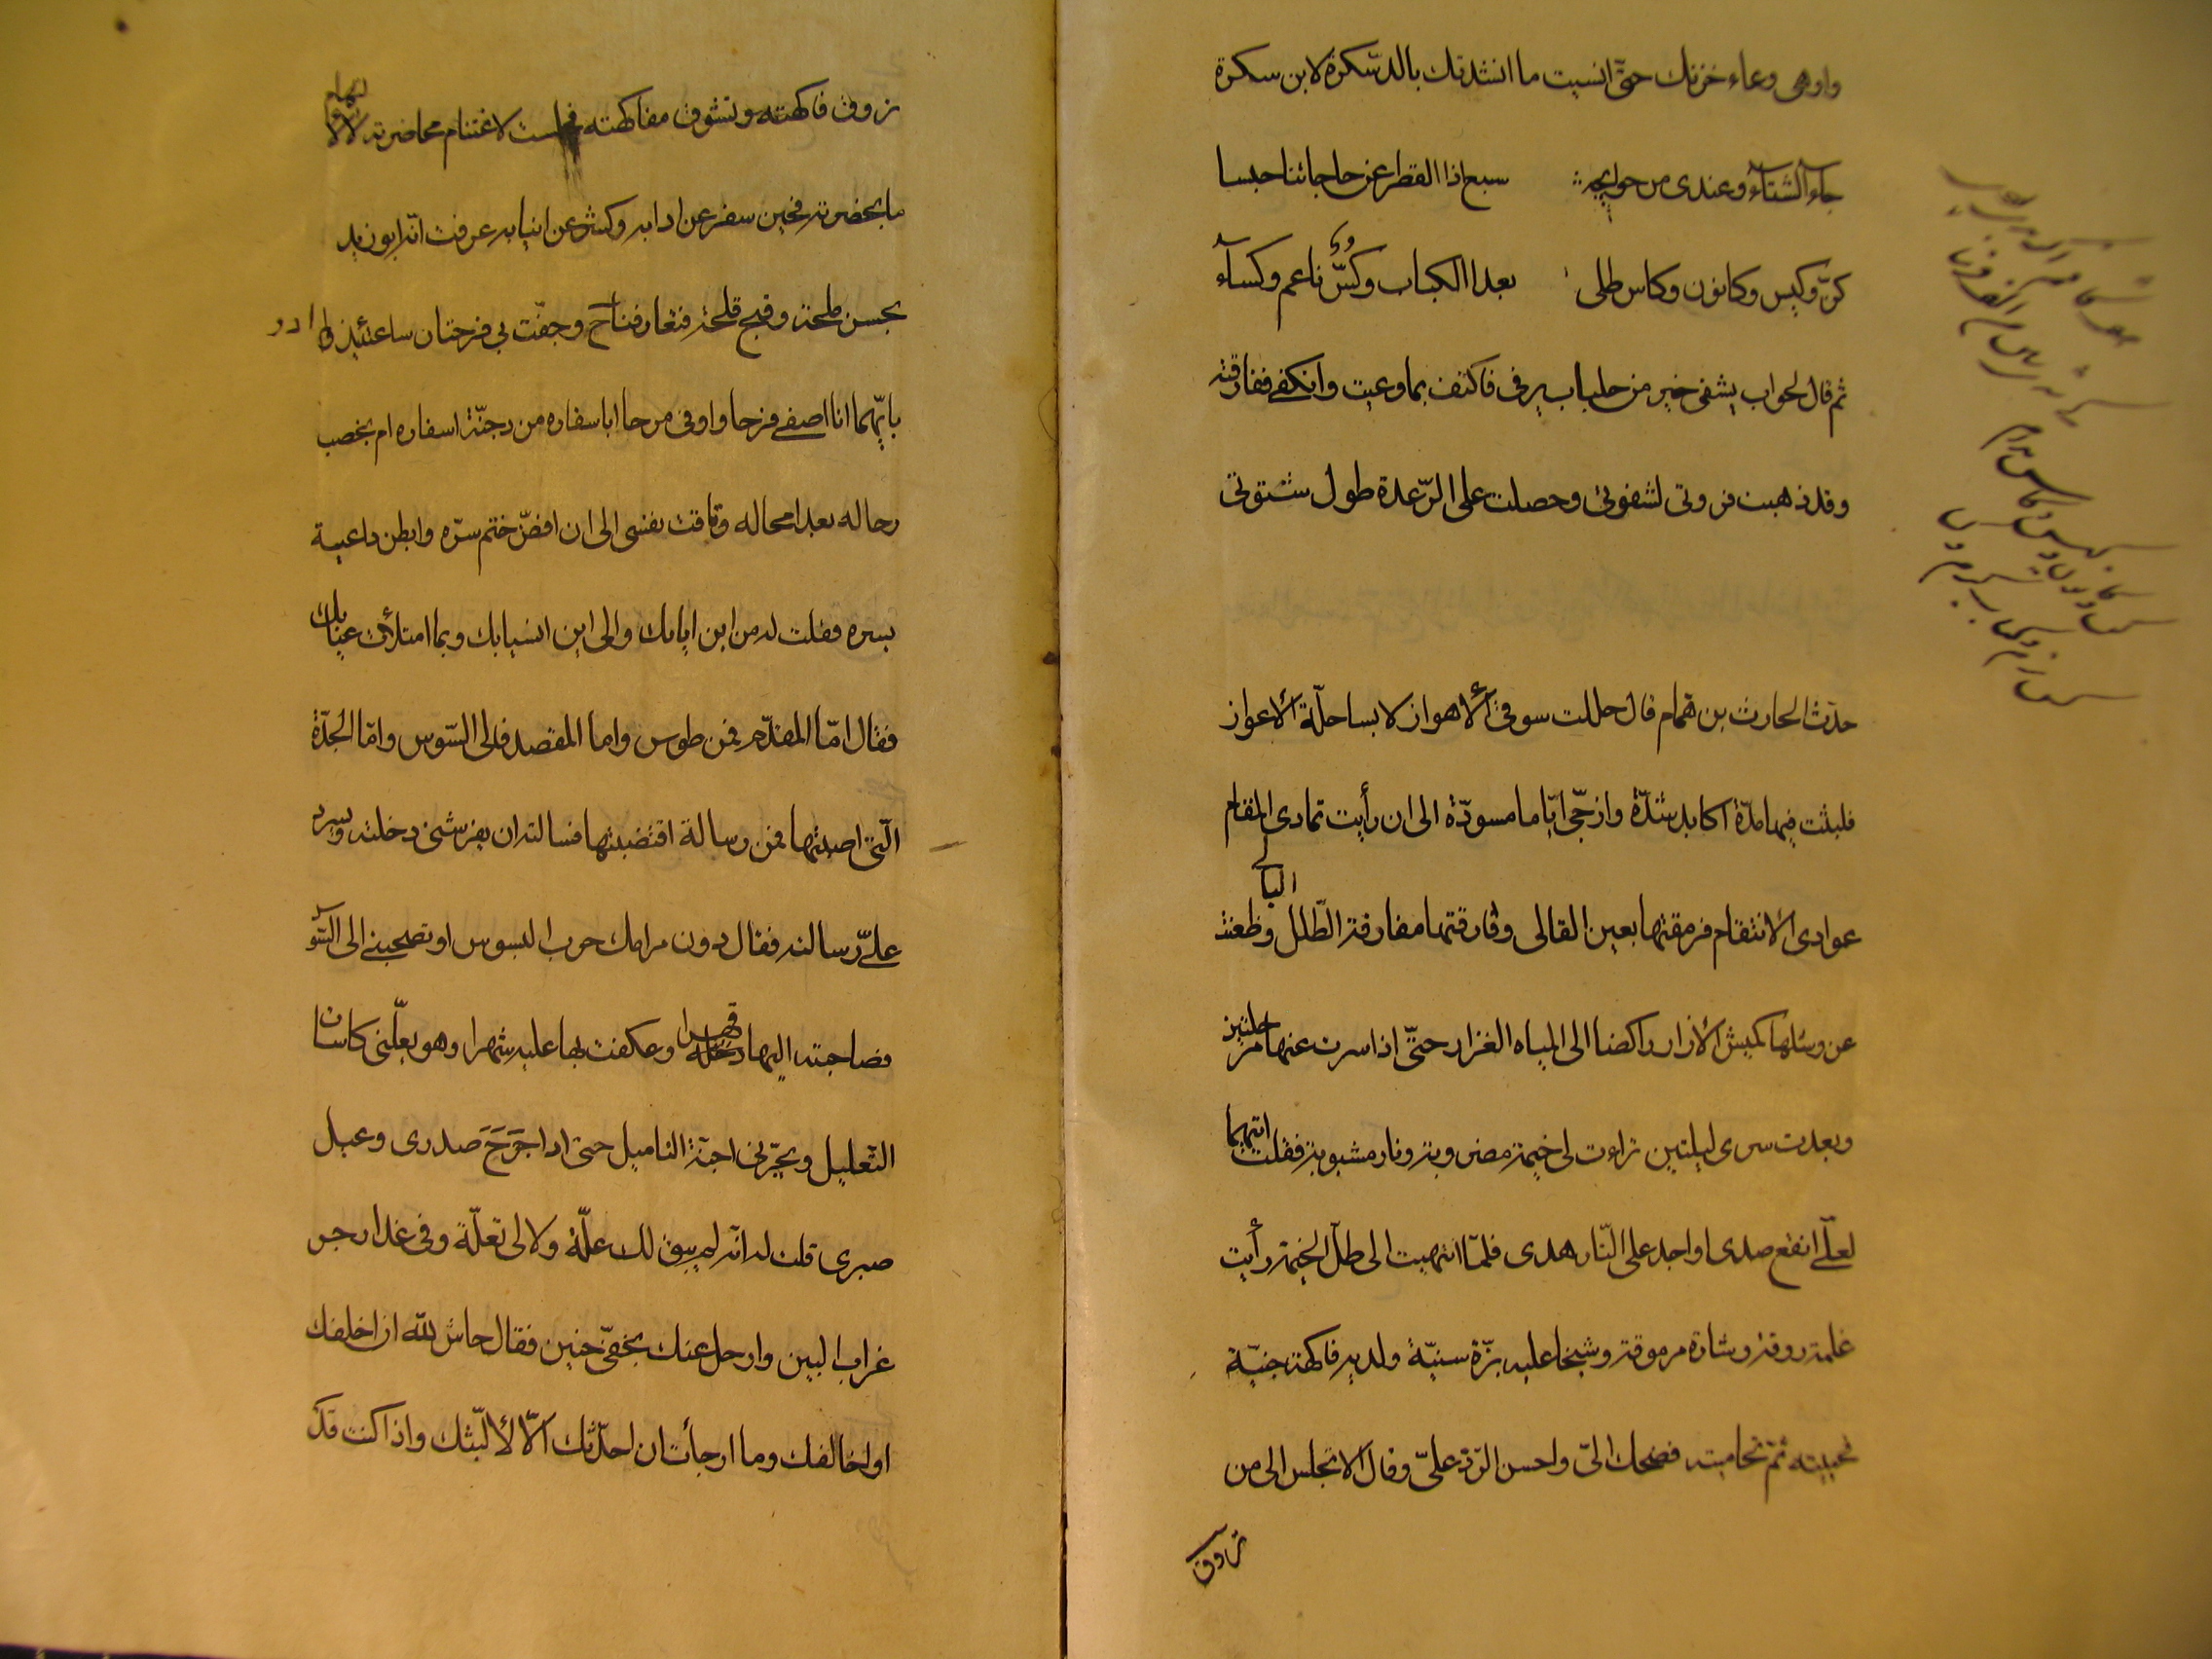 واوهى وعاء خزنك حتّى انسيت ما انشدتك بالدّسكرة لابن سكرة
جآء الشتآء وعندى من حوايجه سبع اذا القطر عن حاجاتنا حبسا
كنّ وكيس وكانون وكاس طلى بعد الكباب وكسّ ناعم وكسآء
ثم قال لجواب يشفى خير من جلباب يدفى فاكتف بما وعيت وانكفى ففارقته
وقد ذهبت فروتى لشقوتى وحصلت على الرّعدة طول شتوتى
حدّث الحارث بن همّام قال حللت سوقى الأهواز لابسا حلّة الأعواز
فلبثت فيها مدّة اكابد شدّة وازجّى ايّاما مسودّة الى ان رأيت تمادى المقام
عوادى الانتقام فرمقتها بعين القالى وفارقتها مفارقة الطّلل البالى وظعنت
عن وشلها كميش الأزار راكضا الى المياه الغزار حتّى اذا سرت عنها مرحلتين
وبعدت سرى ليلتين تراءت لى خيمة مضروبة ونار مشبوبة فقلت اتيهما
لعلّى انقع صدى او اجد على النّار هدى فلمّا انتهيت الى ظلّ الخيمة رأيت
غلمة روقة وشارة مرموقة وشيخا عليه بزّة سنيّة ولديه فاكهة جنيّة
فحييته ثمّ تحاميته فضحك الىّ واحسن الرّدّ علىّ وقال الا تجلس الى من
تروق
تروق فاكهته وتشوق مفاكهته فجلست لاغتنام محاضرته لا لالتهام
ما بحضرته فحين سفر عن ادابه وكشر عن انيابه عرفت انّه ابو زيد
بحسن ملحته وقبح قلحته فتعارفنا ح وحفّت بى فرحتان ساعتئذ ولم ادر
بايّهما انا اصفى فرحا واوفى مرحا اباسفاره من دجنّة اسفاره ام بخصب
رحاله بعد امحاله وتاقت نفسى الى ان افضّ ختم سرّه وابطن داعية
يسره فقلت له من اين ايابك والى اين انسيابك وبما امتلأت عيابك
فقال امّا المقدم فمن طوس واما المقصد فالى السّوس وامّا الجدّة
الّتى اصبتها فمن رسالة اقتضبتها فسالته ان يفرشنى دخلته ويسرد
علىّ رسالته فقال دون مرامك حرب البسوس او تصحبنى الى السّوس
فصاحبته اليها قهرا وعكفت بها عليه شهرا وهو يعلّنى كاسات
التّعليل ويجرّنى اجنّة التاميل حتى اذا حرج صدرى وعيل
صبرى قلت له انّه لم يبق لك علّة ولا لى تعلّة وفى غد ازجر
غراب البين وارحل عنك بخفّى حنين فقال حاش للّه ان اخلفك
او اخالفك وما ارجأت ان احدّثك الّا لألبّثك واذا كنت قد